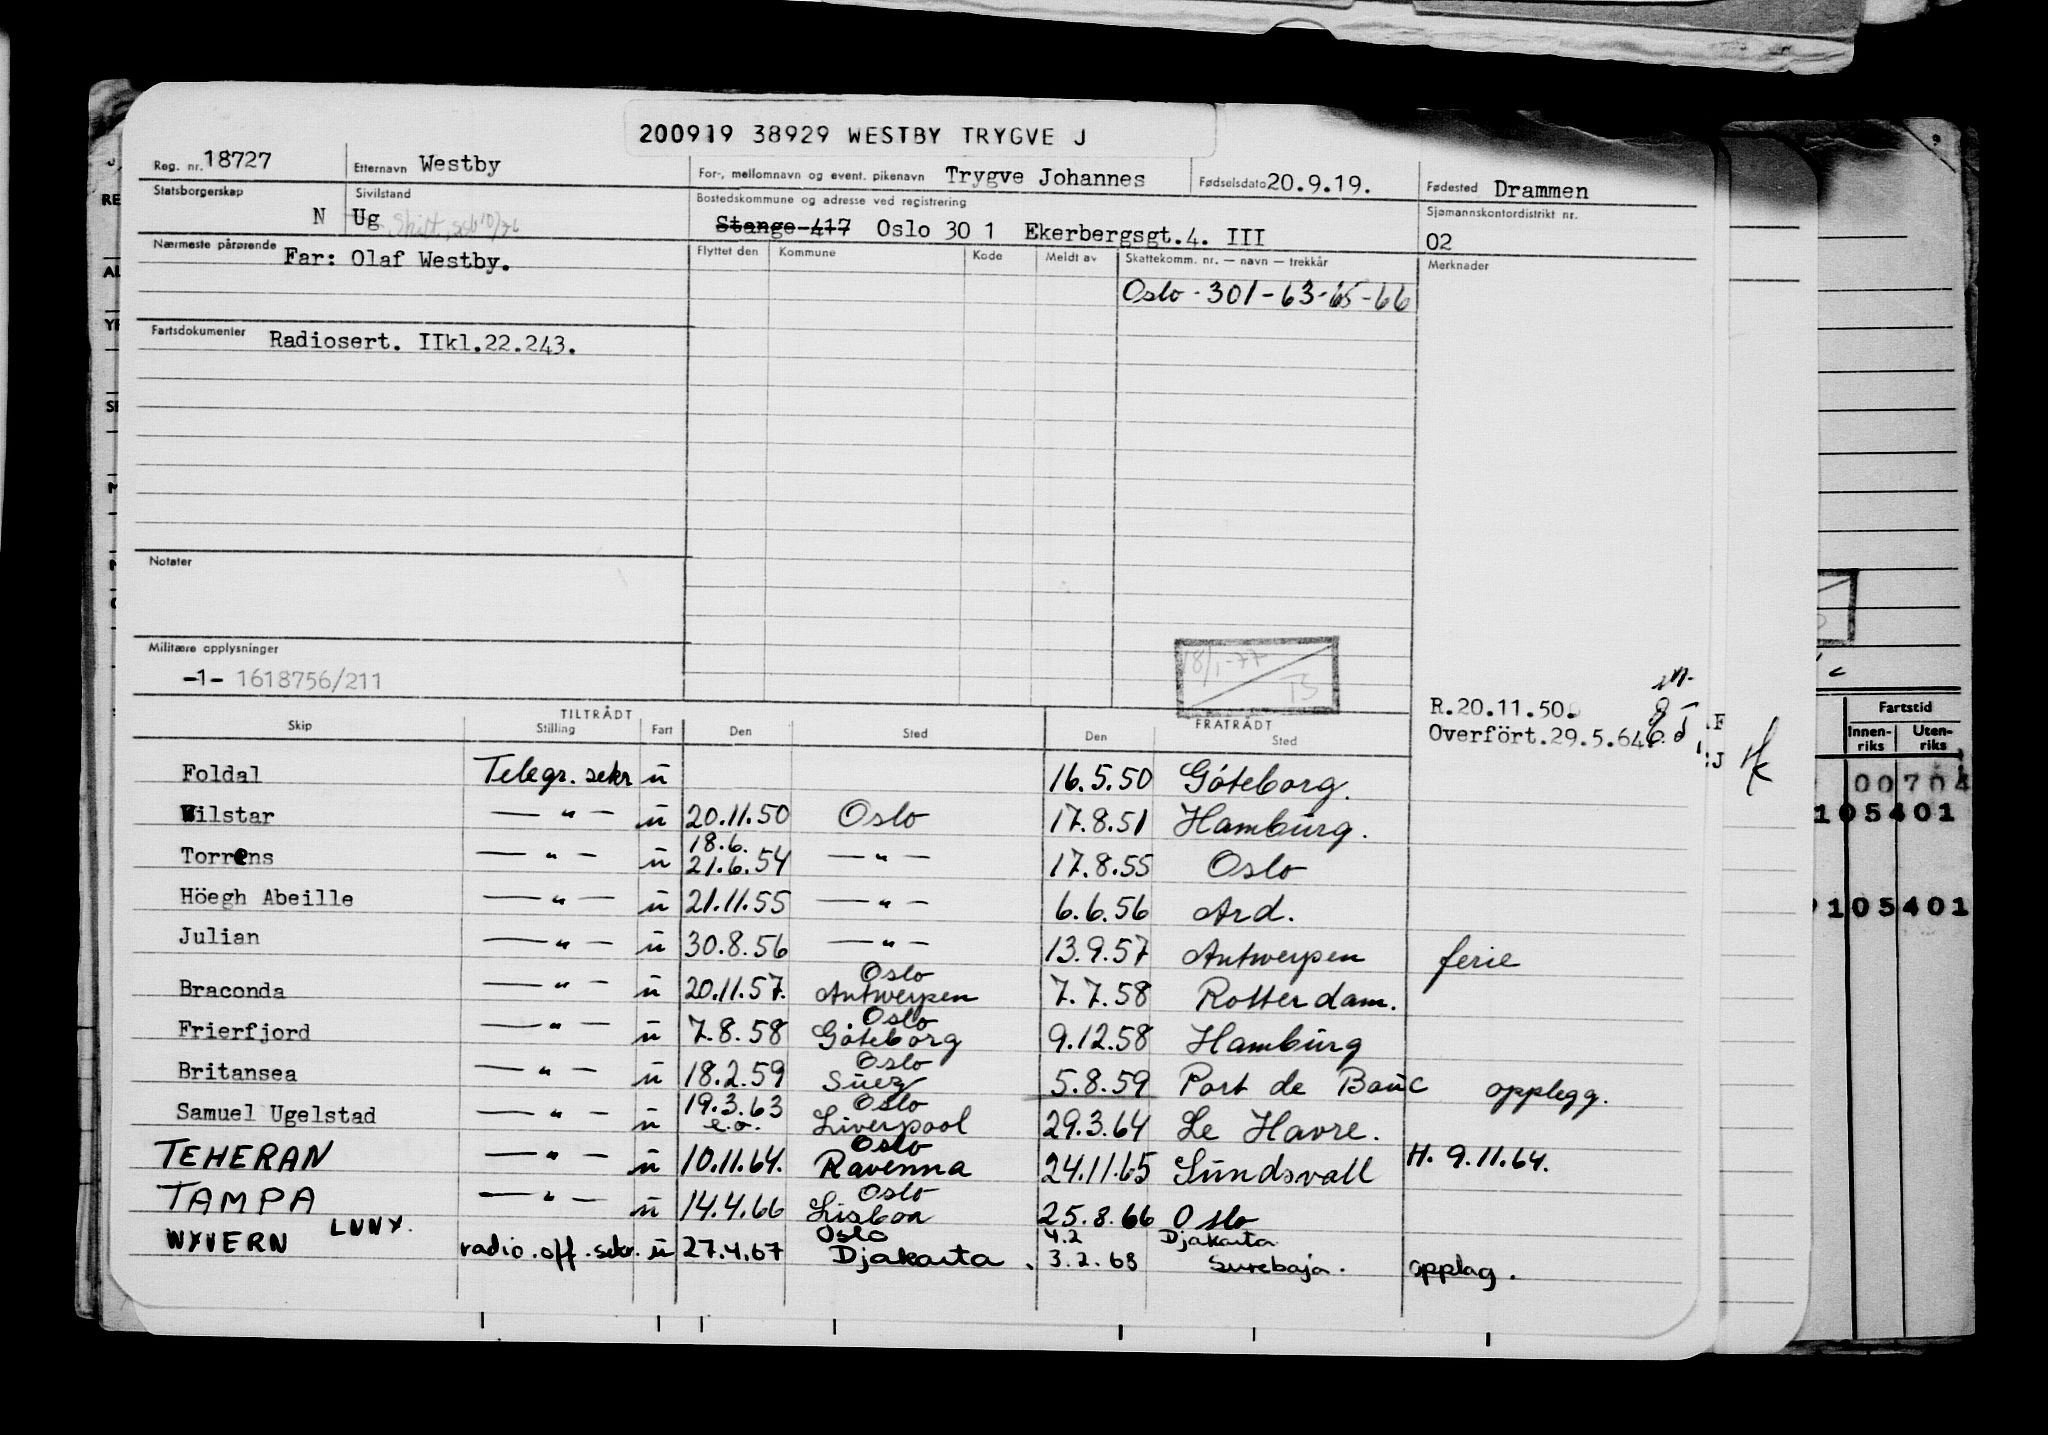 200919 38929 WESTBY TRYGVE J
Reg. nr. 18727 Etternavn Westby For-, mellomnavn og event. pikenavn Trygve Johannes Fødselsdato 20.9.19. Fødested Drammen
Statsborgerskap N Sivilstand Ug Bostedskommune og adresse ved registrering Stange 417 Oslo 30 1 Ekerbergsgt.4. III Sjømannskontordistrikt nr. 02
Nærmeste pårørende Far: Olaf Westby. Flyttet den Kommune Kode Meldt av Skattekomm. nr. — navn — trekkår Merknader
Oslo - 301 - 63-65-66
Fartsdokumenter Radiosert. IIkl.22.243.
Notater
Militære opplysninger
-1- 1618756/211
18/1-77
TS
R.20.11.50.
Overfört.29.5.64.
TILTRÅDT FRATRÅDT
Skip Stilling Fart Den Sted Den Sted
Foldal Telegr. sekr u 16.5.50 Göteborg.
Wilstar — " — u 20.11.50 Oslo 17.8.51 Hamburg.
18.6.
Torrens — " — u 21.6.54 — " — 17.8.55 Oslo
Höegh Abeille — " — u 21.11.55 — " — 6.6.56 Ard.
Julian — " — u 30.8.56 — " — 13.9.57 Antwerpen ferie
Oslo
Braconda — " — u 20.11.57. Antwerpen 7.7.58 Rotterdam.
Oslo
Frierfjord — " — u 7.8.58 Göteborg 9.12.58 Hamburg
Oslo
Britansea — " — u 18.2.59 Suez 5.8.59 Port de Bouc opplegg.
19.3.63 Oslo
Samuel Ugelstad — " — u e.o. Liverpool 29.3.64 Le Havre.
Oslo
TEHERAN — " — u 10.11.64. Ravenna 24.11.65 Sundsvall H. 9.11.64.
Oslo
TAMPA — " — u 14.4.66 Lisboa 25.8.66 Oslo
LNNY. Oslo 4.2 Djakarta
WYVERN radio.off.sekr. u 27.4.67 Djakarta. 3.2.68 Surebaja. opplag.
Fartstid
Innen-riks Uten-riks
00704
105401
105401